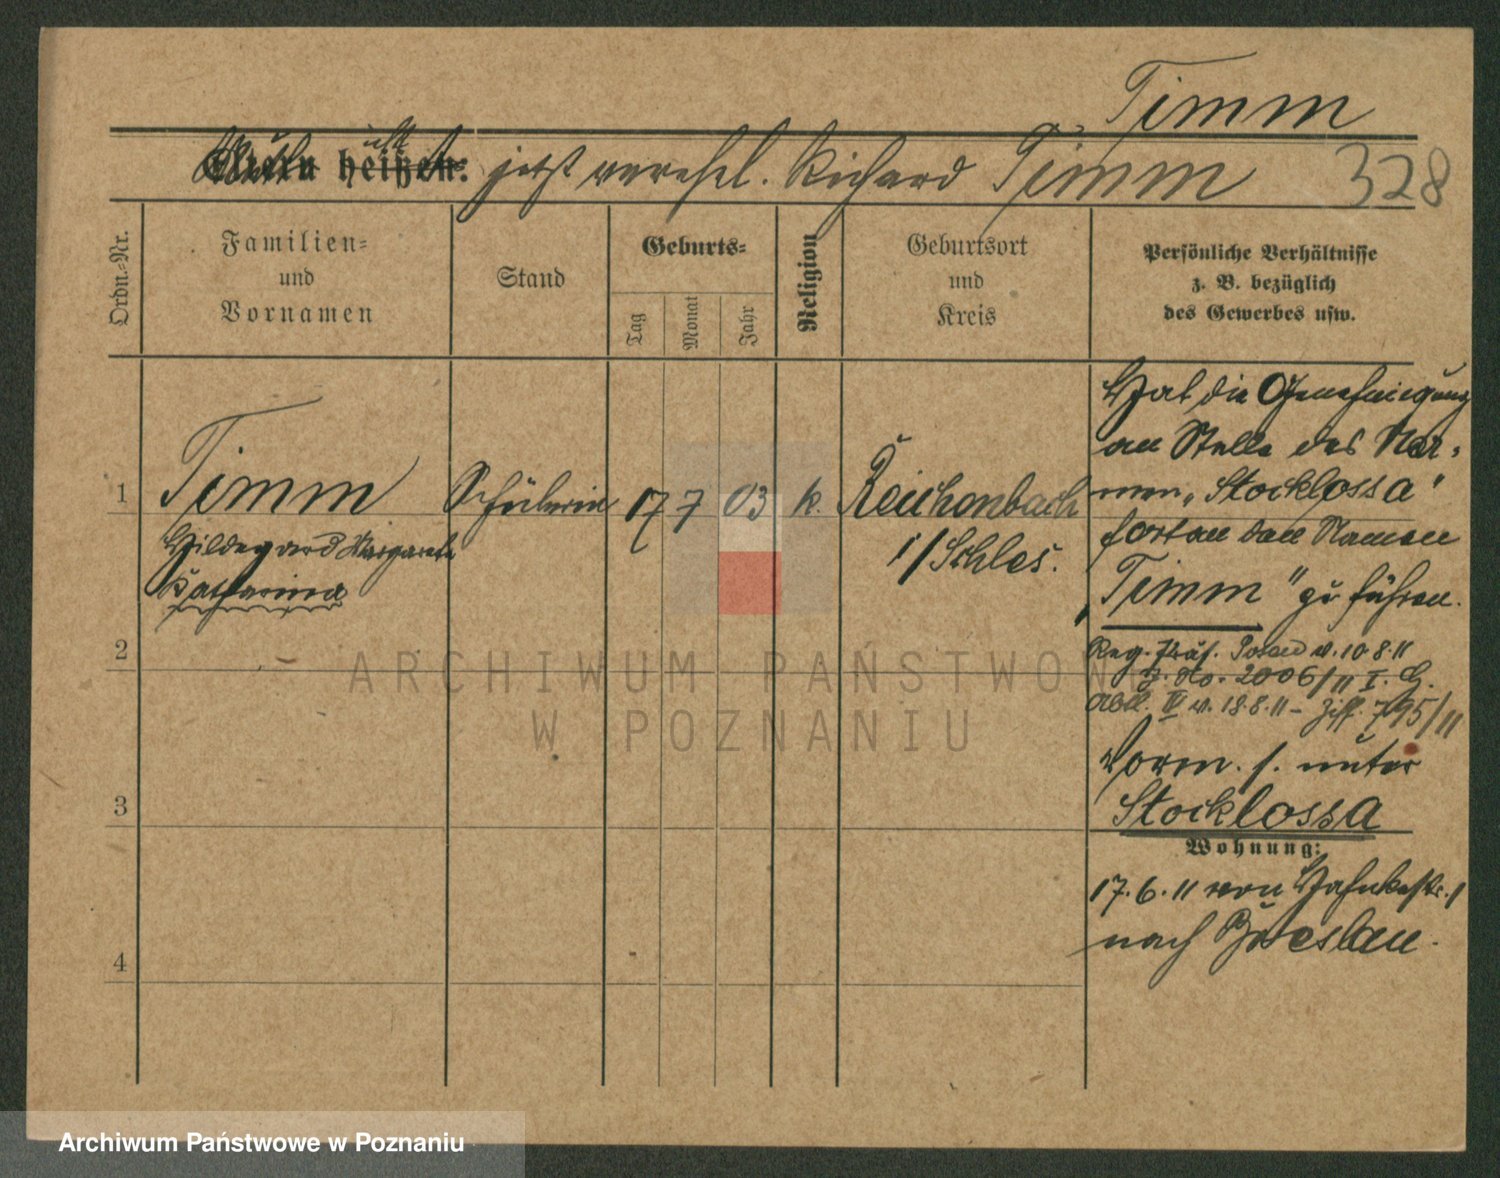 Timm
Eltern heißen: jetzt verehel. Richard Timm 328
Ordn.-Nr.
Familien-
und
Vornamen
Stand
Geburts-
Tag
Monat
Jahr
Religion
Geburtsort
und
Kreis
Persönliche Verhältnisse
z. B. bezüglich
des Gewerbes usw.
1 Timm Schülerin 17 7 03 k. Reichenbach
Hildegard Margarete i/Schles.
Katharina
Hat die Genehmigung
an Stelle des Na-
men „Stocklossa"
fortan den Namen
„Timm" zu führen.
Reg. Präs. Posen v. 10.8.11
J. No. 2006/11 I. G.
Abtl. IV v. 18.8.11 – Ziff. 795/11
Vorm. s. unter
Stocklossa
2
3
4
Wohnung:
17.6.11 von Hahnkestr. 1
nach Breslau.
ARCHIWUM PAŃSTWOWE
W POZNANIU
Archiwum Państwowe w Poznaniu